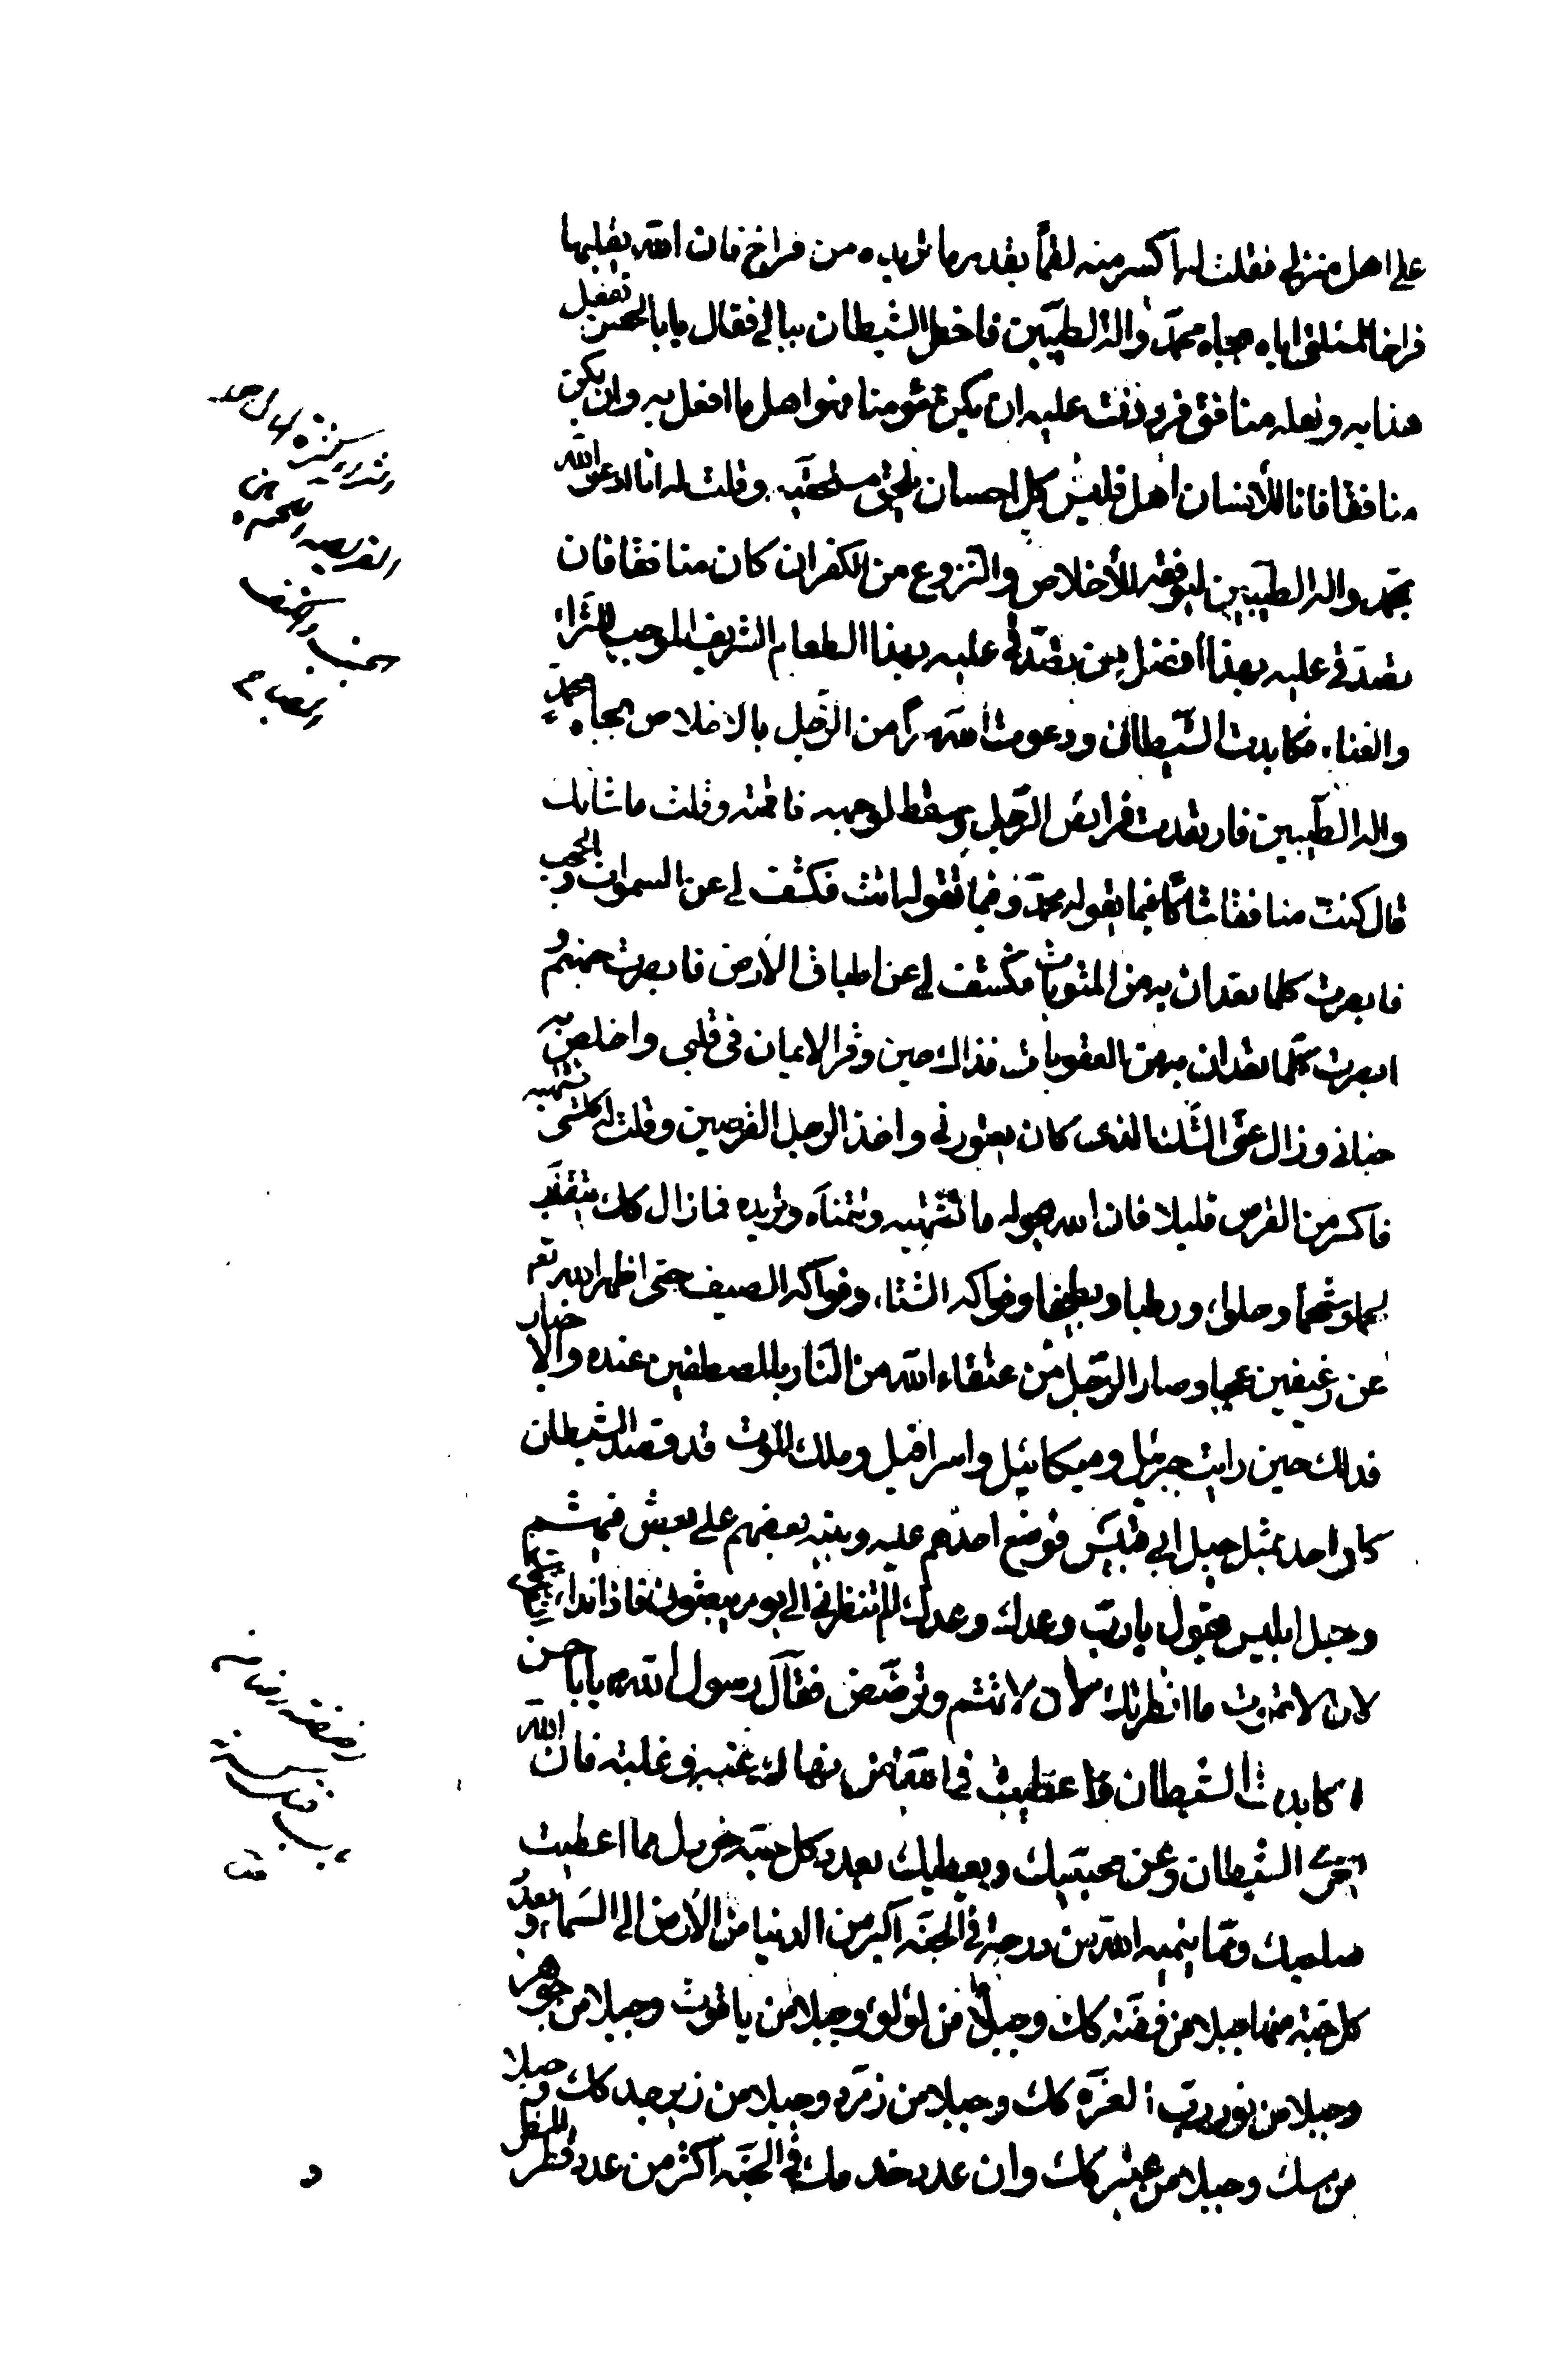 على اهل منزلي فقلت له اكسر منه لقما بقدر ما تريده من فراخ فان الله يقلبها
فراخا لمسئلتى اياه بجاه محمد واله الطيبين فاخطر الشيطان ببالي فقال يا ابا الحسن تفعل
هذا به ولعله منافق فرددت عليه ان يكن مؤمنا فهو اهل ما افعل به وان يكن
منافقا فانا للأحسان اهل فليس كل احسان يلحق مستحقه وقلت له انا ادعو الله
بمحمد واله الطيبين ليوفقه للأخلاص والنزوع عن الكفر ان كان منافقا فان
تصدقي عليه بهذا افضل من تصدقي عليه بهذا الطعام الشريف الموجب للثراء
والغناء فكابدت الشيطان ودعوت الله سرا من الرجل بالاخلاص بجاه محمد
واله الطيبين فارتعدت فرايص الرجل وسقط لوجهه فاقمته وقلت ما شانك
قال كنت منافقا شاكا فيما يقوله محمد وفيما تقوله انت فكشف لي عن السموات والحجب
فابصرت كلما تعدان به من المثوبات وكشف لي عن اطباق الأرض فابصرت جهنم و
ابصرت كلما تعدان به من العقوبات فذاك حين وقر الايمان في قلبي واخلص به
جناني وزال عني الشك الذي كان يعتورني واخذ الرجل القرصين وقلت له كل شئ تشتهيه
فاكسر من القرص قليلا فان الله يحوله ما تشتهيه وتتمناه وتريده فما زال كك يتقلب
لحما وشحما وحلواء ورطبا وبطيخا وفواكه الشتاء وفواكه الصيف حتى اظهر الله تعـ
من رغيفين عجبا وصار الرجل من عتقاء الله من النار بالمصطفين عنده والاخيار
فذلك حين رايت جبرئيل وميكائيل واسرافيل وملك الموت قد قصد الشيطان
كل واحد بمثل جبل ابي قبيس فوضع احدهم عليه وبنيه بعضهم على بعض فتهشم
وجعل ابليس يقول يا رب وعدك وعدك الم تنظرني الى يوم يبعثون فاذا نداء
لان لا تموت ما انظرتك لأن لا تهشم وترضض فقال رسول الله يا ابا حسن
كابدت الشيطان فاعطيت في الله من نهاك عنه وغلبته فان الله
يخزي الشيطان وعن محبيك ويعطيك بعدد كل حبة خردل مما اعطيت
صاحبك ومما ينميه الله من درجة في الجنة اكبر من الدنيا من الأرض الى السماء وبعدد
كل حبة منها جبلا من فضة كك وجبلا من لؤلؤ وجبلا من ياقوت وجبلا من جوهر
وجبلا من نور رب العزة كك وجبلا من زمرد وجبلا من زبرجد كك وجبلا
من مسك وجبلا من عنبر كك وان عدد خدمك في الجنة اكثر من عدد قطر المطر
و